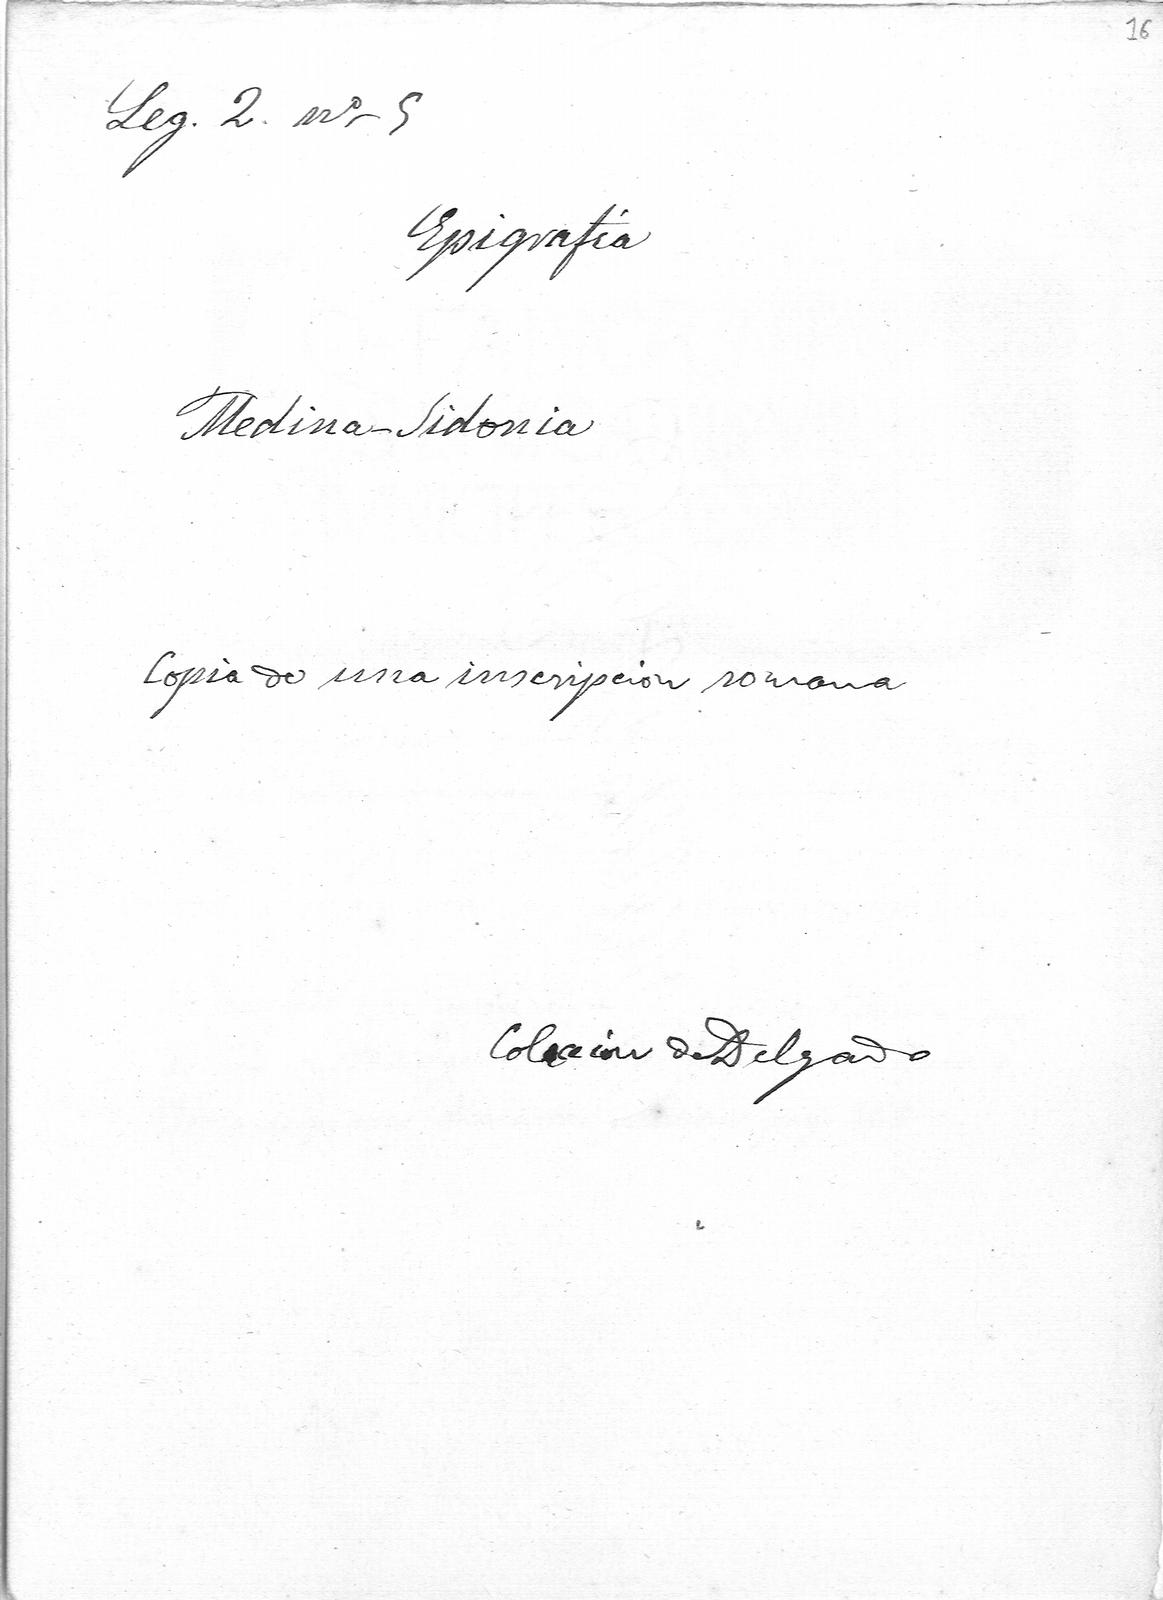 16
Leg. 2. nº 5
Epigrafía
Medina-Sidonia
Copia de una inscripcion romana
Coleccion de Delgado